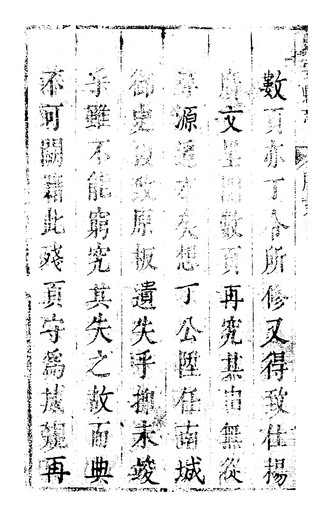 數頁亦丁令所修又得致仕揚
廣文呈閱數頁再究其由無從
源遠去矣想丁公陞任南城
御史攷原板遺失乎抑未竣
乎雖不能窮究其失之故而典
不可闕籍此殘頁守爲據號再